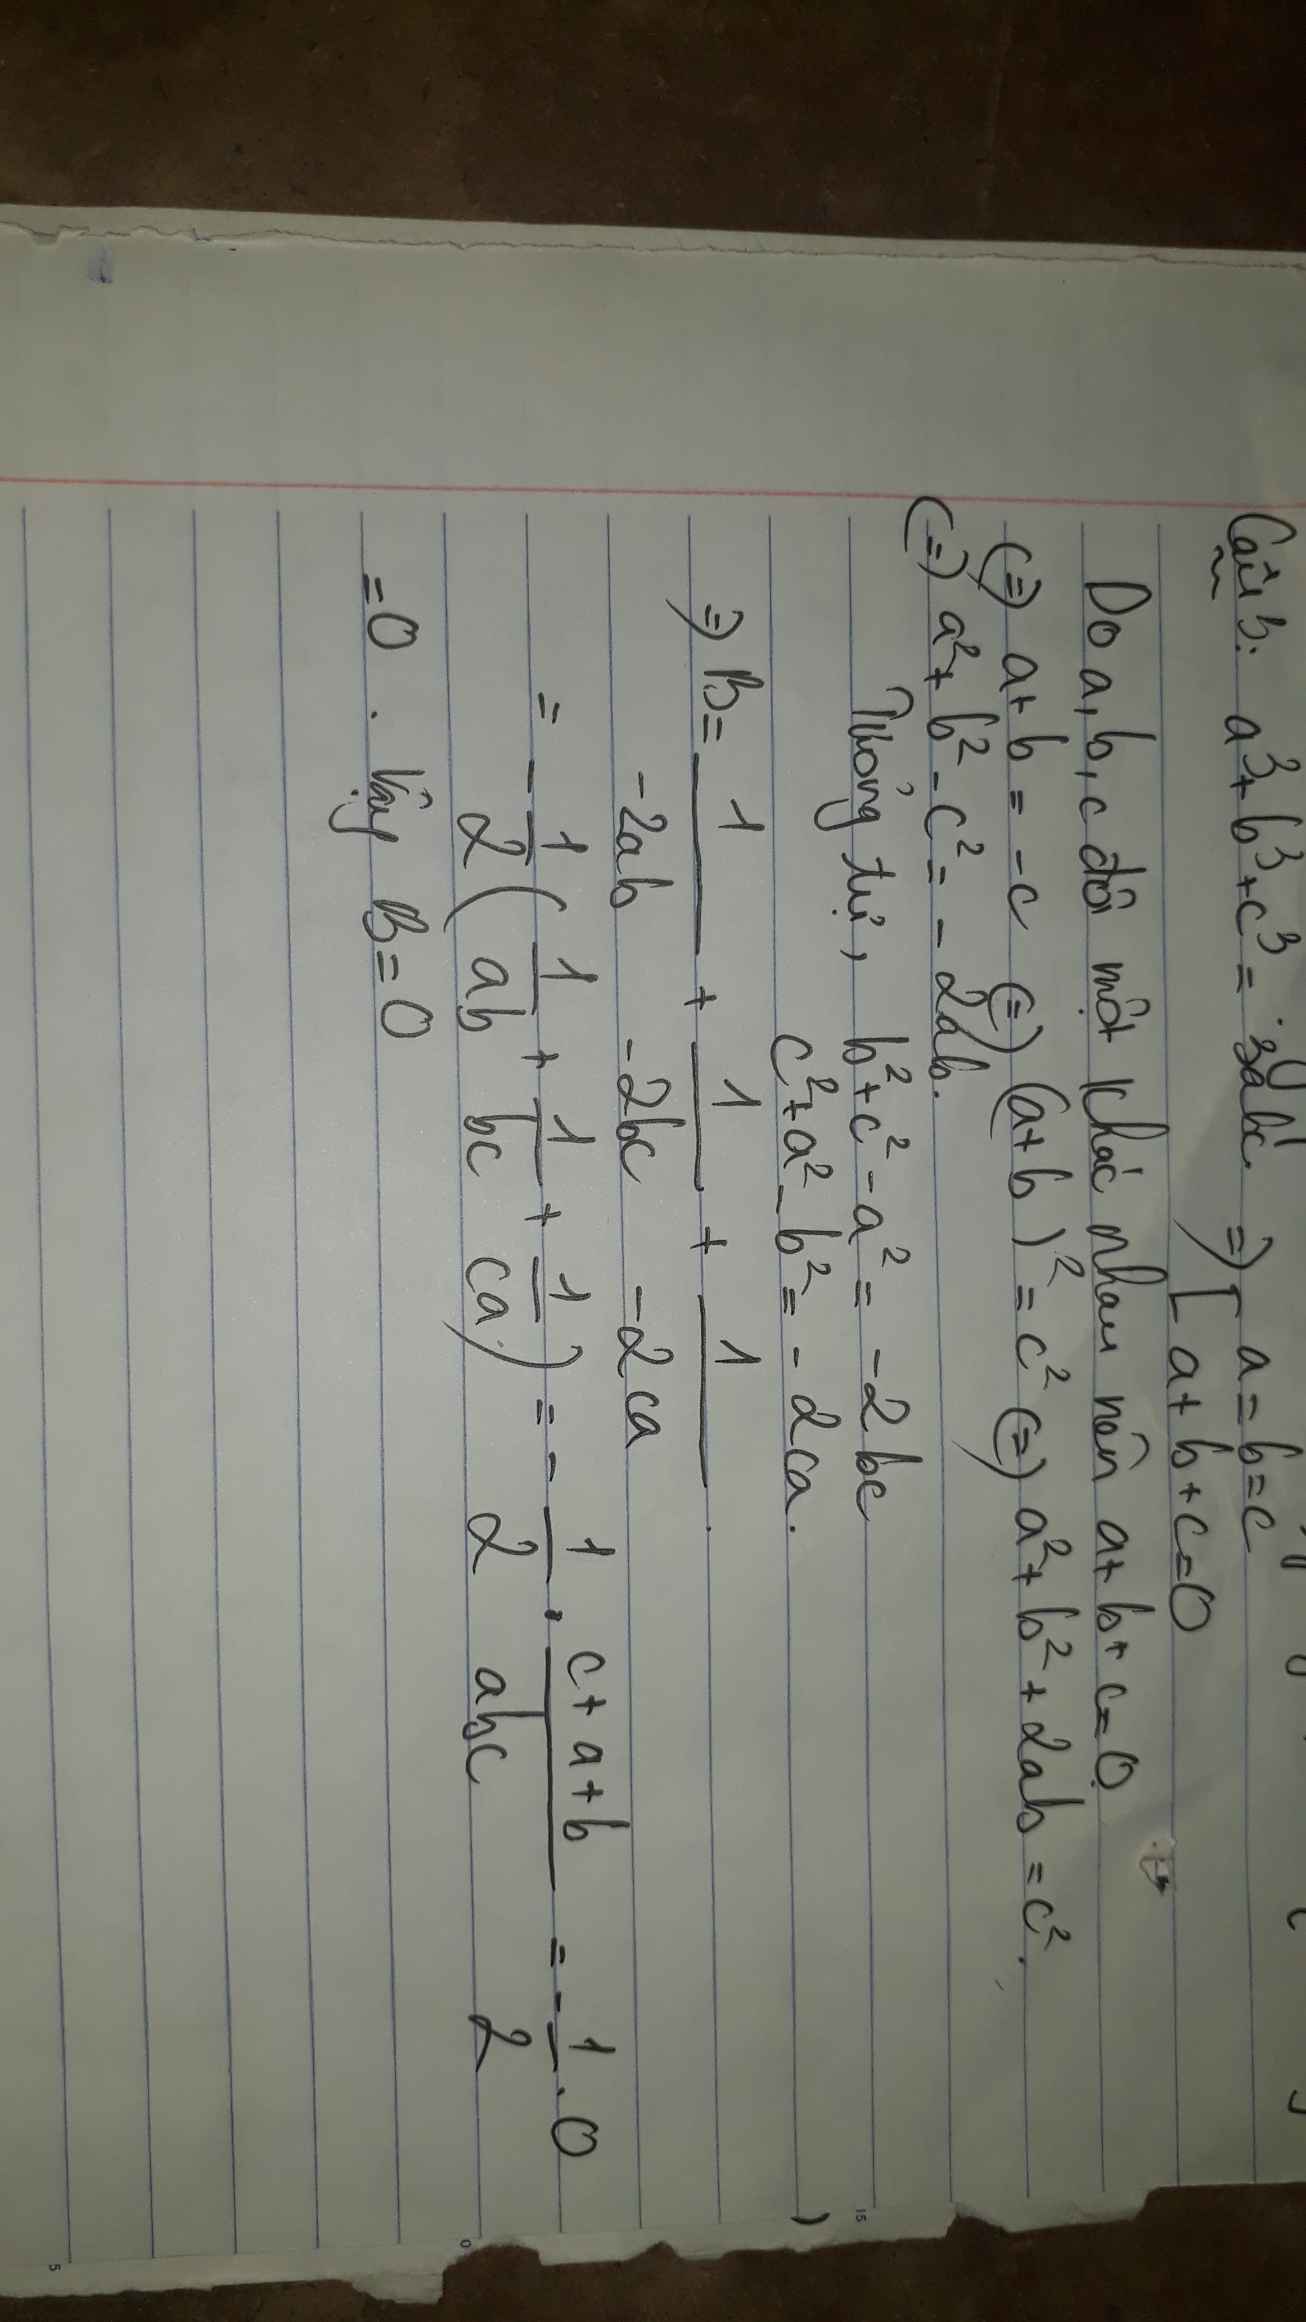 Câu b: a³ + b³ + c³ = 3abc. ⇒ [ a = b = c
a + b + c = 0
Do a, b, c đôi một khác nhau nên a + b + c = 0.
(=) a + b = -c (=) (a+b)² = c² (=) a² + b² + 2ab = c².
(=) a² + b² - c² = - 2ab.
Tương tự, b² + c² - a² = -2bc
c² + a² - b² = - 2ca.
⇒ B = 1/-2ab + 1/-2bc + 1/-2ca.
= - 1/2 ( 1/ab + 1/bc + 1/ca ) = - 1/2 . c+a+b/abc = - 1/2 . 0
= 0 . Vậy B = 0
15
0
5